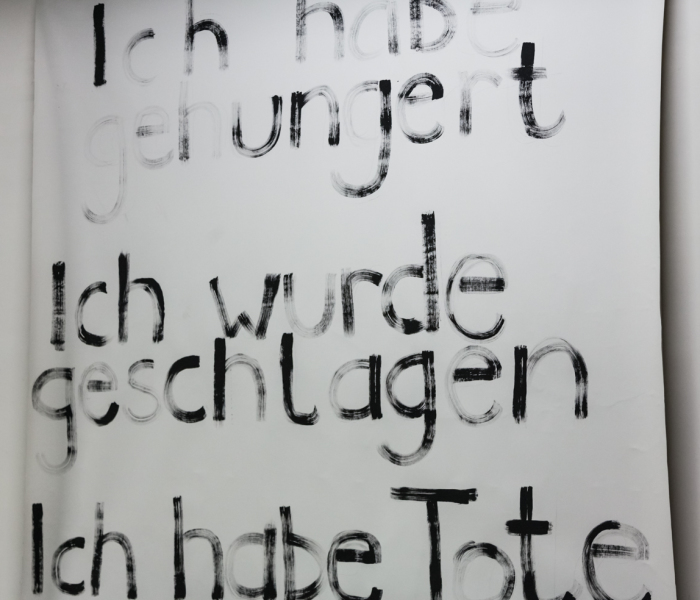 Ich habe
gehungert
Ich wurde
geschlagen
Ich habe Tote